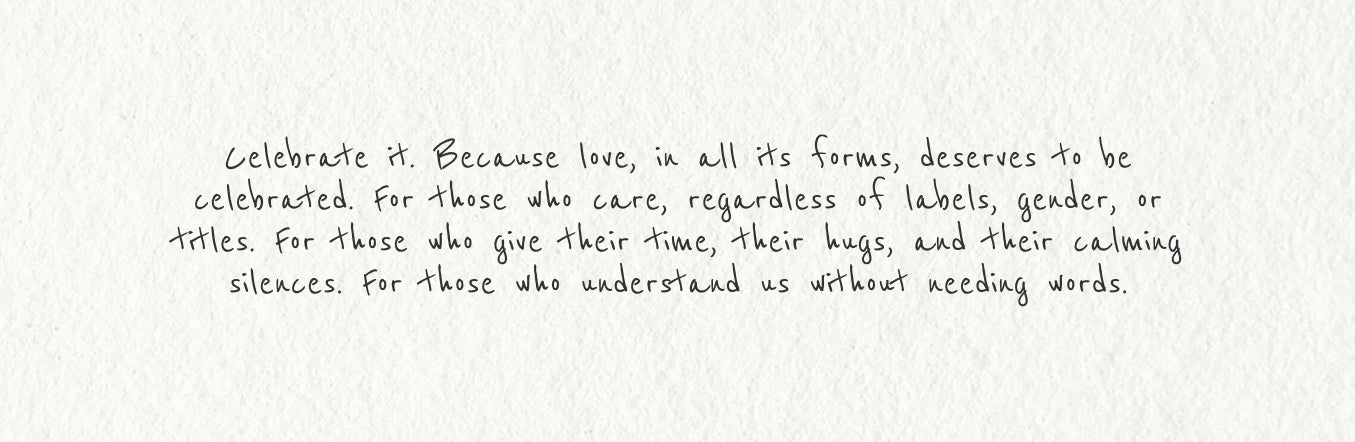 Celebrate it. Because love, in all its forms, deserves to be
celebrated. For those who care, regardless of labels, gender, or
titles. For those who give their time, their hugs, and their calming
silences. For those who understand us without needing words.